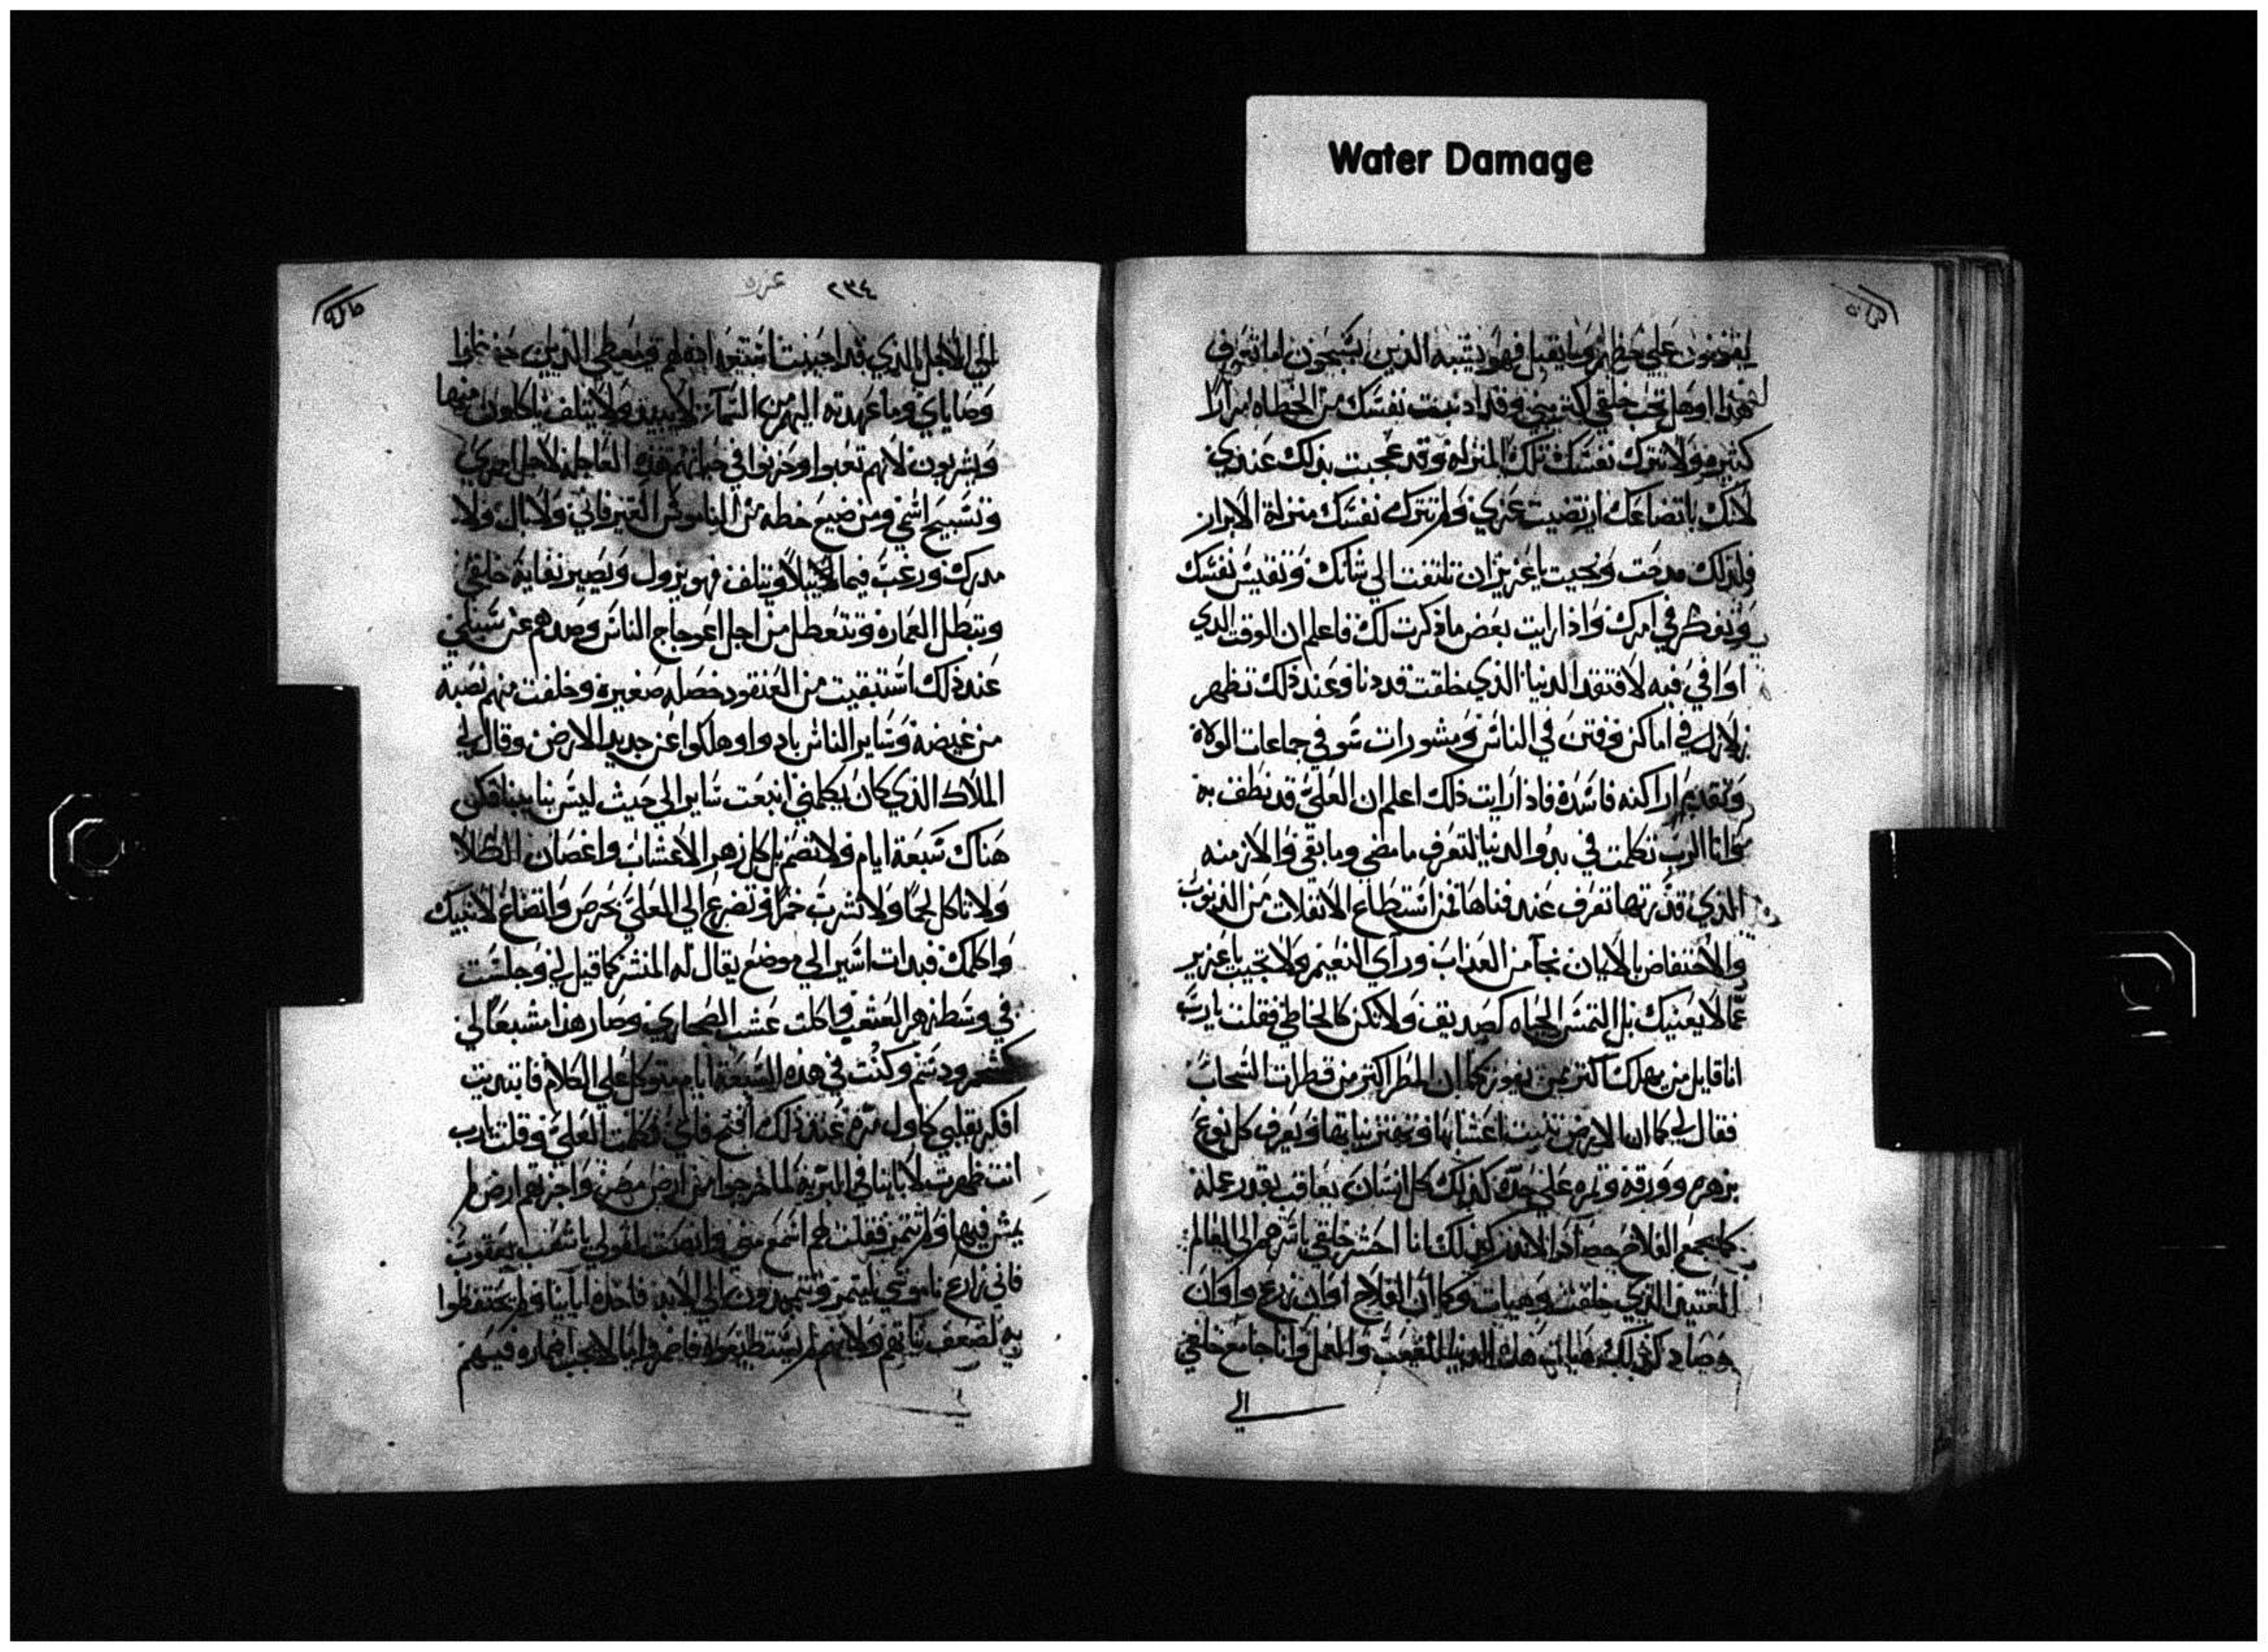 Water Damage
لهذا اوهل تحب خلقي اكتر مني وقد اد نفسك من الخطاه مرارا
كثيره ولا تترك نفسك تلك المنزله وقد عجبت بذلك عندي
لانك باتضاعك ارتضيت عندي ولم تترك نفسك منزلة الابرار
فلذلك مدحت ونجيت يا عزيز ان تلتفت الي شانك وتفتيش نفسك
وتفكر في امرك واذا رايت بعض ما ذكرت لك فاعلم ان الوقت الدي
اوافي فيه لافتقد الدنيا الذي خلقت قد دنا وعند ذلك تظهر
زلازل في اماكن وفتن في الناس ومشورات سو في جماعات الولاة
وتقديم اراكنه فاسده فاذا رايت ذلك اعلم ان العلي قد نطف به
وانا الرب تكلمت في بدو الدنيا لتعرف ما مضي وما بقي والازمنه
الذي قدرتها تعرف عند فناها فمن استطاع الانفلات من الذنوب
والاحتفاض بالايمان نجا من العذاب وراي النعيم ولا تجيب يا عزير
عما لا يعنيك بل التمس الحياه كصديق ولا تكن كالخاطي فقلت يارب
انا قايل من يهلك اكتر ممن يفوز كما ان المطر اكتر من قطرات السحاب
فقال لي كما ان الارض تنبت اعشابها وتهتز بنباتها ويعرف كل نوع
بزهره وورقه وثمره علي حدة كذلك كل انسان يعاقب بقدر عمله
كما يجمع الفلاح حصاد الاندر كذلك انا احشر خلقي باسرهم الي العالم
العتيد الذي خلقت وهيات وكما ان الفلاح اوان زرع واوان
حصاد كذلك هيات هذه الدنيا للتعب والعمل وانا جامع خلقي
الي
٢٣٤ عزرا
الي الاجل الدي قد احببت
وصاياي وما عهدته اليهم من السما لا يبيد ولا يتلف ياكلون فيها
ويشربون لانهم تعبوا وحزنوا في حياتهم هذه العاجله لاجل
وتسبيح اسمي ومن ضيع حظه من الناموس الغير فاني ولا بال ولا
مدرك ورغب فيما يبلا ويتلف فهو يزول ويصير نفاية خلقي
وتبطل العماره وتتعطل من اجل اعوجاج الناس وصدهم عن سبيلي
عند ذلك استبقيت من العنقود خصله صغيره وخلفت منهم نصبة
من غيضه وساير الناس بادوا وهلكوا عن جديد الارض وقال لي
الملاك الذي كان يكلمني انبعت ساير الي حيث ليس بنا بينا فكن
هناك سبعة ايام ولا تصم بل كل زهر الاعشاب واغصان الكلا
ولا تاكل لحما ولا تشرب خمرا وتضرع الي العلي بحرص واتضاع لاتيك
واكلمك فبدات اسير الي موضع يقال له المنشر كما قيل لي وجلست
في وسط زهر العشب واكلت عشب الصحاري وصار هذا مشبعا لي
كشحم ودسم وكنت في هذه السبعة ايام متوكل علي الكلام فابتديت
افكر بقلبي كاول مره عند ذلك افتح فاي وكلمت العلي وقلت يارب
انت ظهرت لابائنا في البريه لما خرجوا من ارض مصر واجزتهم ارض لم
يمش فيها ولم تثمر فقلت لهم اسمع مني وانصت لقولي يا شعب يعقوب
فاني زارع ناموسي ليثمر وتتمجدون الي الابد فاخذه اباينا ولم يحتفظوا
به لضعف نياتهم ولانهم لم يستطيعوا